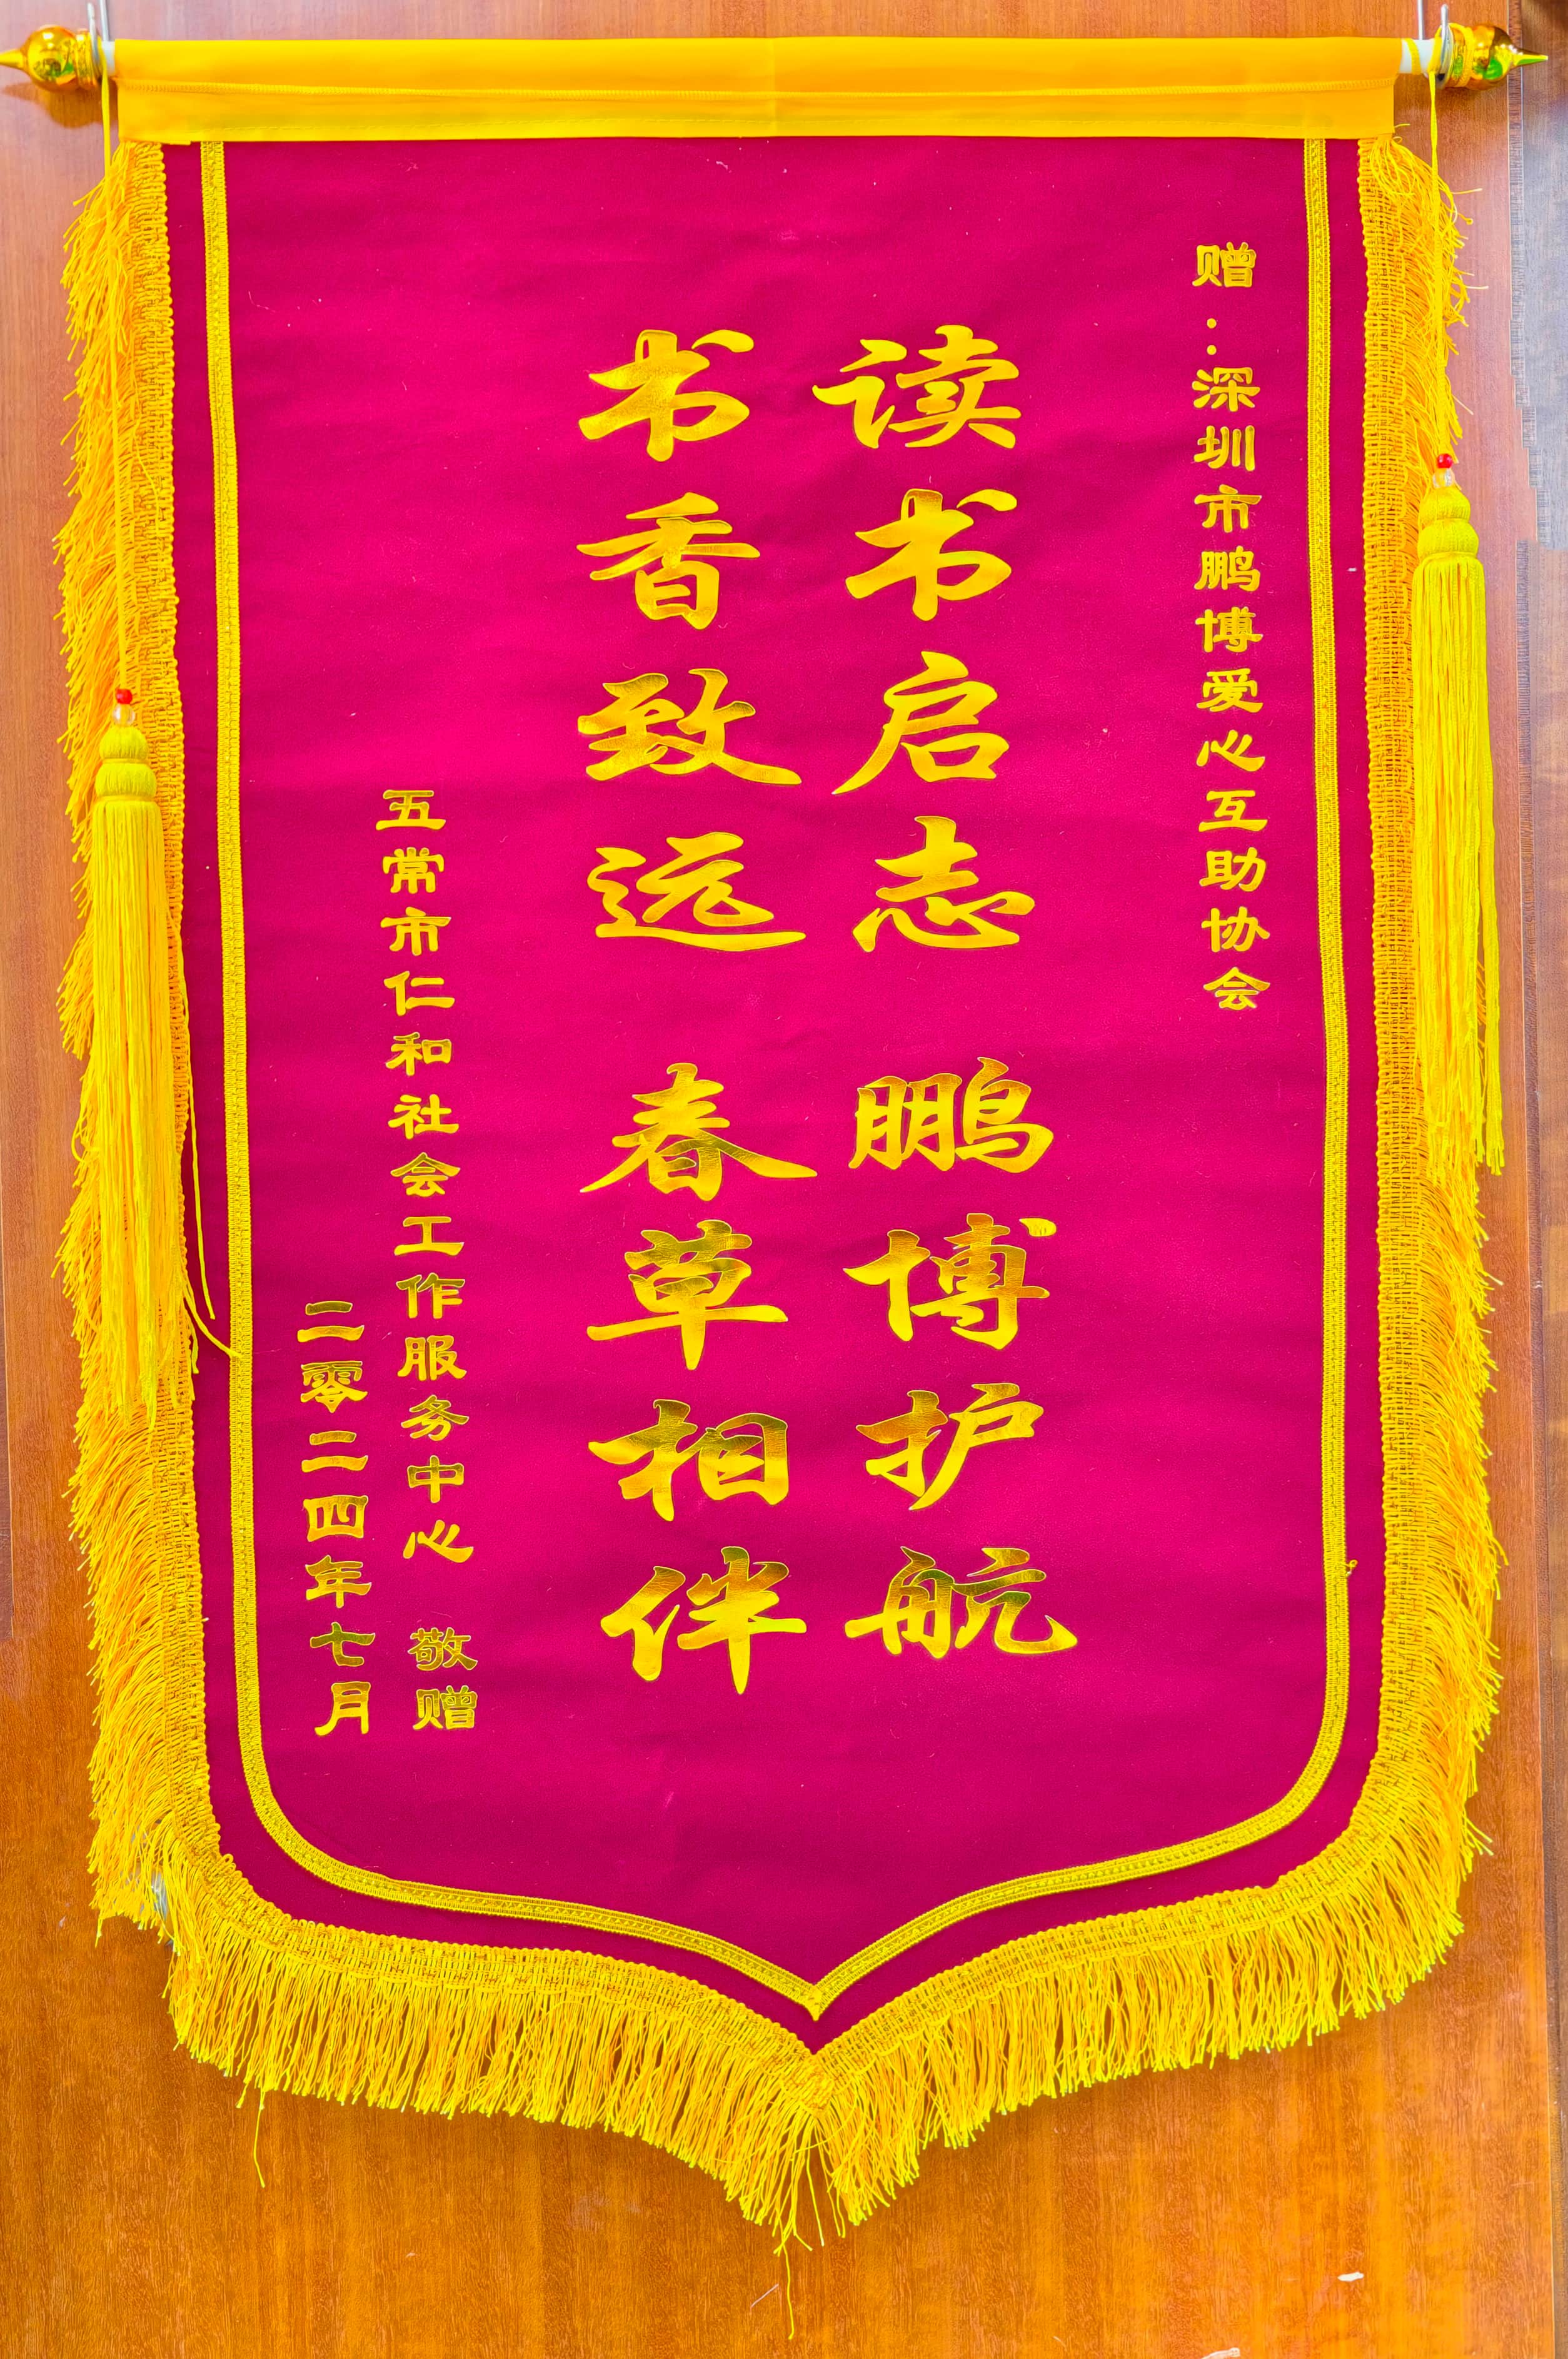 赠：深圳市鹏博爱心互助协会
读书启志 鹏博护航
书香致远 春草相伴
五常市仁和社会工作服务中心 敬赠
二零二四年七月